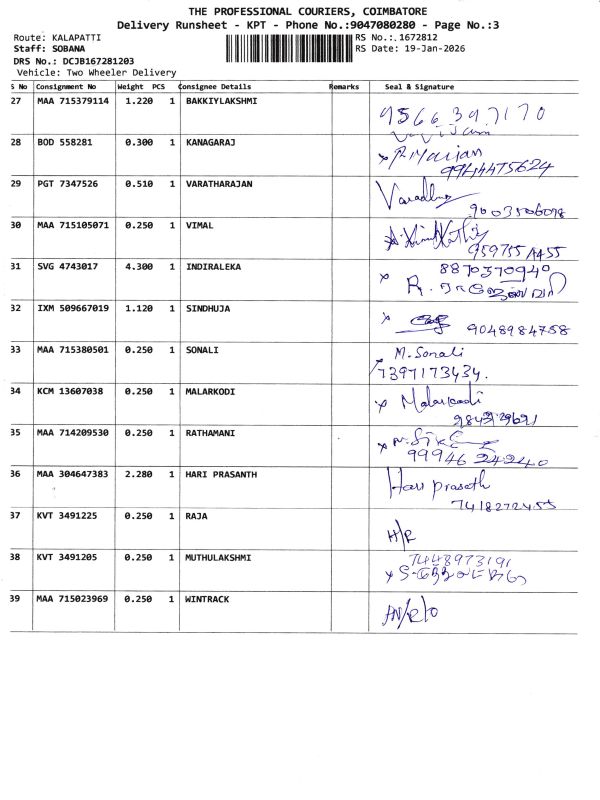 THE PROFESSIONAL COURIERS, COIMBATORE
Delivery Runsheet - KPT - Phone No.:9047080280 - Page No.:3
Route: KALAPATTI
RS No.: 1672812
Staff: SOBANA
RS Date: 19-Jan-2026
DRS No.: DCJB167281203
Vehicle: Two Wheeler Delivery
S No Consignment No Weight PCS Consignee Details Remarks Seal & Signature
27 MAA 715379114 1.220 1 BAKKIYLAKSHMI
28 BOD 558281 0.300 1 KANAGARAJ
9944475624
29 PGT 7347526 0.510 1 VARATHARAJAN
9003506098
30 MAA 715105071 0.250 1 VIMAL
31 SVG 4743017 4.300 1 INDIRALEKA
8870370940
32 IXM 509667019 1.120 1 SINDHUJA
9048984758
33 MAA 715380501 0.250 1 SONALI M. Sonali
7397173434.
34 KCM 13607038 0.250 1 MALARKODI Malarkodi
35 MAA 714209530 0.250 1 RATHAMANI
99946 24240
36 MAA 304647383 2.280 1 HARI PRASANTH Hari prasath
7418272455
37 KVT 3491225 0.250 1 RAJA H/R
38 KVT 3491205 0.250 1 MUTHULAKSHMI 7448973191
39 MAA 715023969 0.250 1 WINTRACK